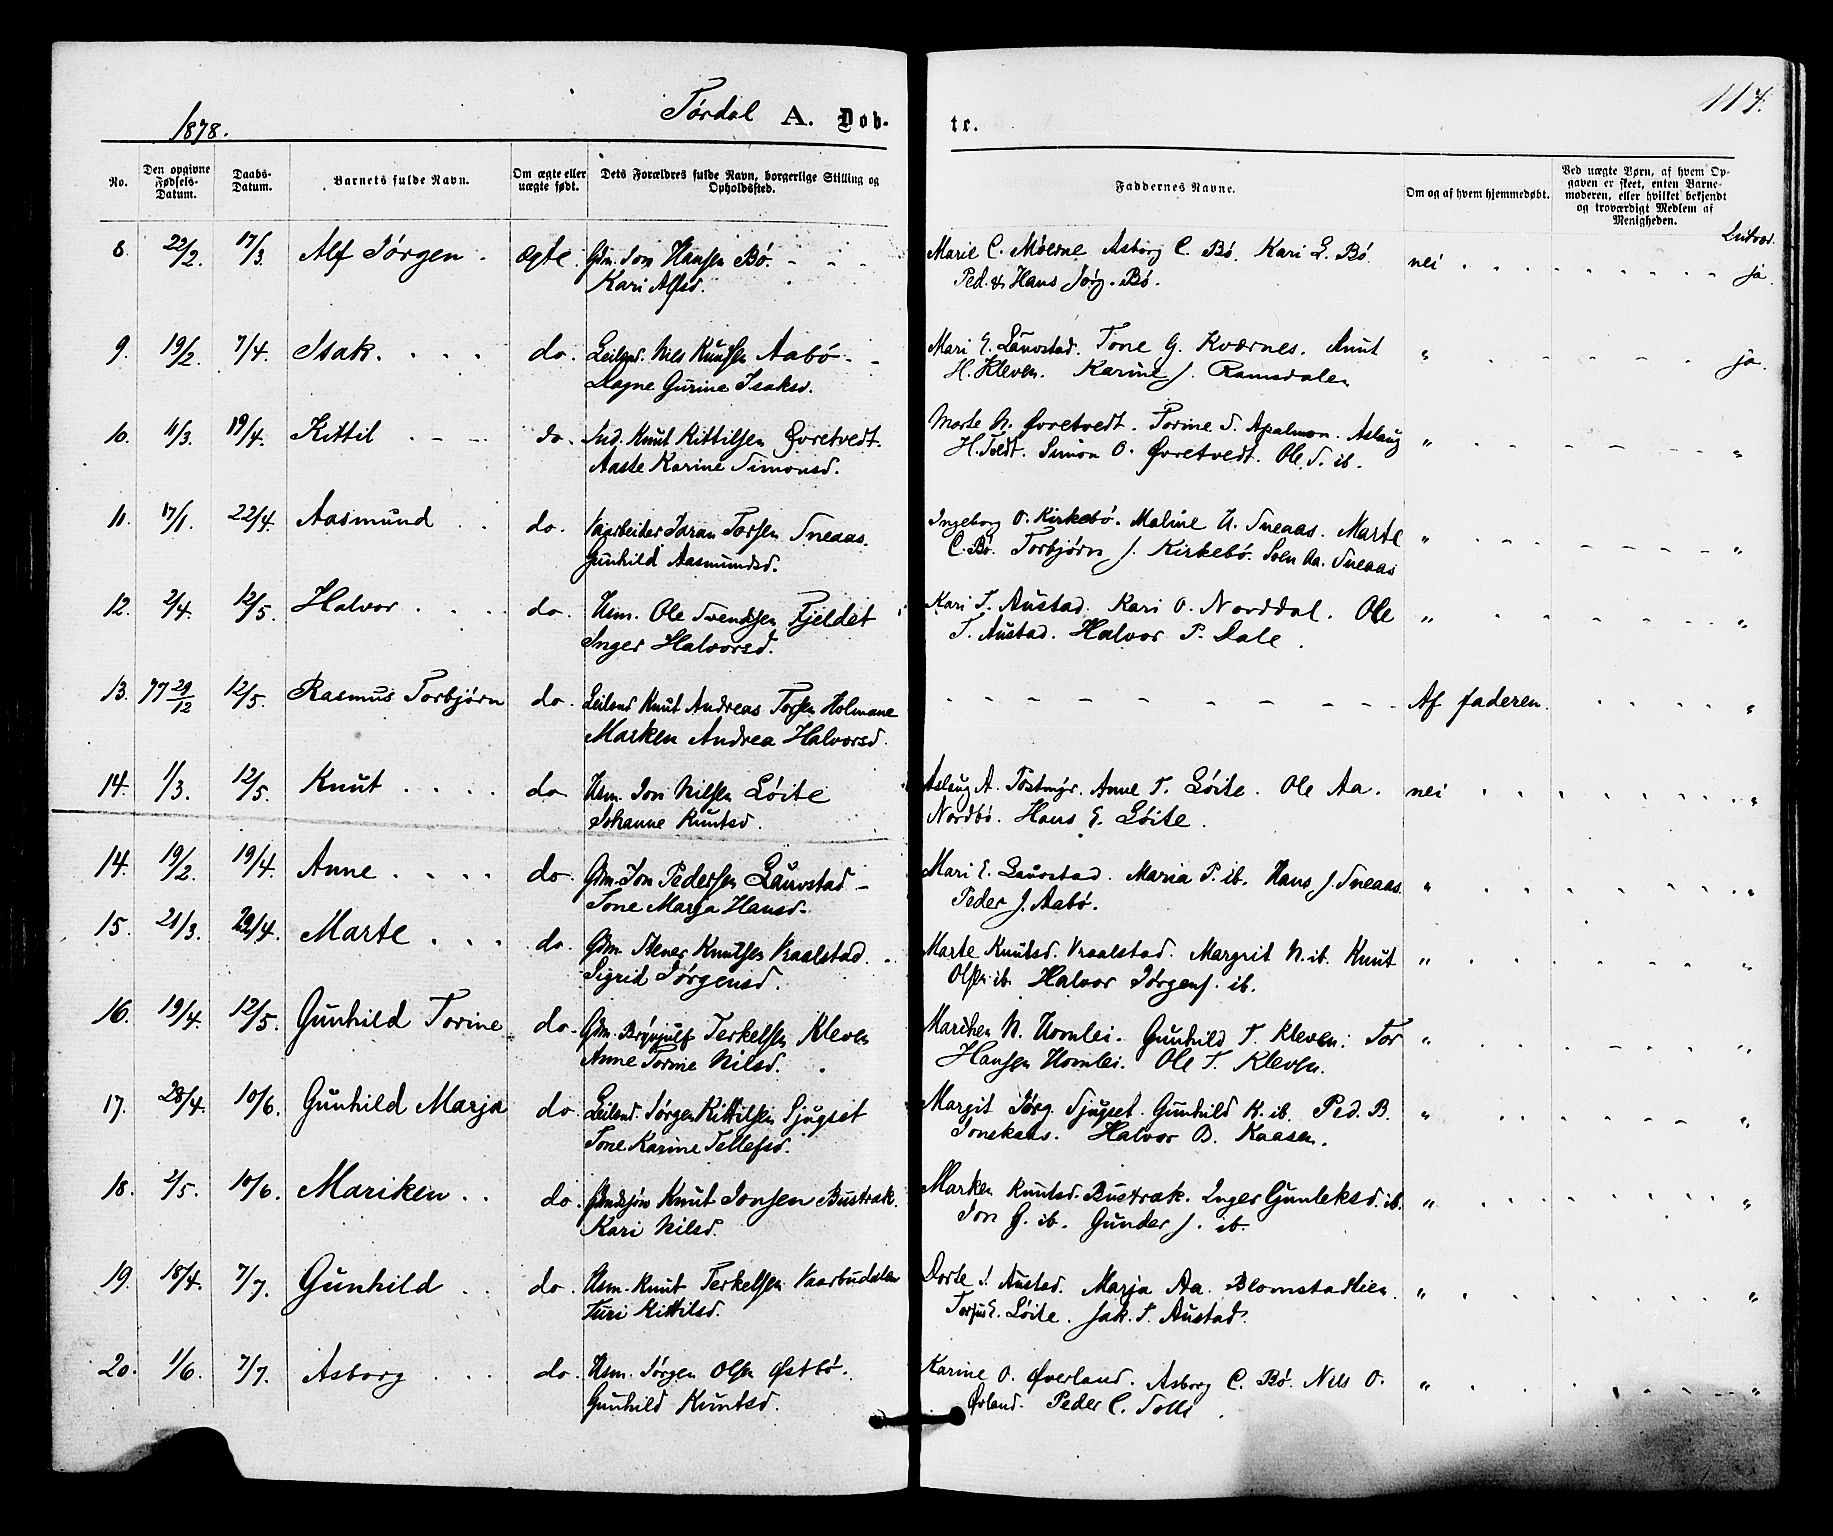 114.
1878.
Tørdal A. Døb- te.
No.
Den opgivne Fødsels-Datum.
Daabs-Datum.
Barnets fulde Navn.
Om ægte eller uægte født.
Dets Forældres fulde Navn, borgerlige Stilling og Opholdssted.
Faddernes Navne.
Om og af hvem hjemmedøbt.
Ved uægte Børn, af hvem Opgaven er skeet, enten Barnemoderen, eller hvilket bekjendt og troværdigt Medlem af Menigheden.
8. 22/2. 17/3. Alf Jørgen. ægte. Gdm. Jon Hansen Bø. Marie C. Asborg C. Bø. Kari L. Bø. nei
Kari Alfsd. Ped. & Hans Jørg. Bø. ja.
9. 19/2. 7/4. Isak. do. Leilend. Nils Knutsen Aabø. Mari E. Lauvstad. Tone G. Kværnes. Knut " ja.
Gurine Isaksd. H. Kleven. Karine J. Ramsdalen
10. 11/3. 19/4. Kittil do. Knut Kittilsen Øvretvedt. Marte N. Øvretvedt. Torine S. Apalmon. Aslaug " "
Aaste Karine Simonsd. H. Tveдt. Simon O. Øvretvedt. Ole S. ib.
11. 17/1. 22/4. Aasmund do. Torsen Sneaas. Ingeborg O. Kirkebø. Maline H. Sneaas. Marte " "
Gunhild Aasmundsd. C. Bø. Torbjørn J. Kirkebø. Sven Aa. Sneaas
12. 2/4. 12/5. Halvor do. Hsm. Ole Svendsen Fjeldet Kari T. Austad. Kari O. Norddal. Ole " "
Inger Halvorsd. T. Austad. Halvor P. Dale.
13. 77 29/12 12/5. Rasmus Torbjørn do. Leilend Knut Andreas Torsen Holmane Af faderen. "
Marken Andrea Halvorsd.
14. 1/3. 12/5. Knut do Hsm. Jon Nilsen Løite Aslaug A. Tostmyr. Anne T. Løite. Ole Aa. nei "
Johanne Knutsd. Nordbø. Hans E. Løite.
14. 19/2. 19/4. Anne do. Gdm. Jon Pedersen Lauvstad Mari E. Lauvstad. Maria P. ib. Hans J. Sneaas. " "
Tone Marja Hansd. Peder J. Aabø.
15. 21/3. 22/4. Marte do. Gdm. Stener Knutsen Vraalstad. Marte Knutsd. Vraalstad. Margrit N. ib. Knut " "
Sigrid Jørgensd. Olsen ib. Halvor Jørgens. ib.
16. 19/4. 12/5. Gunhild Torine do. Gdm. Brynjulf Terkelsen Kleven Marthen N. Homlei. Gunhild T. Kleven. Tor " "
Anne Torine Nilsd. Hansen Homlei. Ole T. Kleven.
17. 28/4. 10/6. Gunhild Marja do. Leilend. Jørgen Kittilsen Sjugset Margit Jørg. Sjugset. Gunhild K. ib. Ped. B. " "
Tone Karine Tellefsd. Joneknas. Halvor B. Kaasen.
18. 2/5. 10/6. Mariken do. Knut Jonsen Bustrak. Marken Knutsd. Bustrak. Inger Gunleksd. ib. " "
Kari Nilsd. Jon G. ib. Gunder J. ib.
19. 18/4. 7/7. Gunhild do. Hsm. Knut Terkelsen Vaarbudalen Dorte J. Austad. Marja Aa. Blomstadlien. " "
Turi Kittilsd. Torjus E. Løite. Jak. T. Austad.
20. 1/6. 7/7. Asborg do. Hsm. Jørgen Olsen Østbø. Karine O. Øverland. Asborg C. Bø. Nils O. " "
Gunhild Knutsd. Øvland. Peder C. Solli.